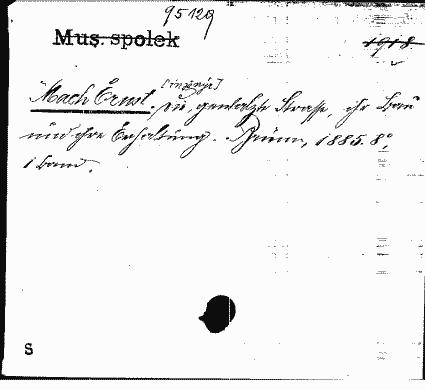 95129
Mus. spolek
1918
[inženýr]
Mach Ernst, Die gewalzte Strasse, ihr Bau
und ihre Erhaltung. Brünn, 1885. 8°,
1 Band.
S